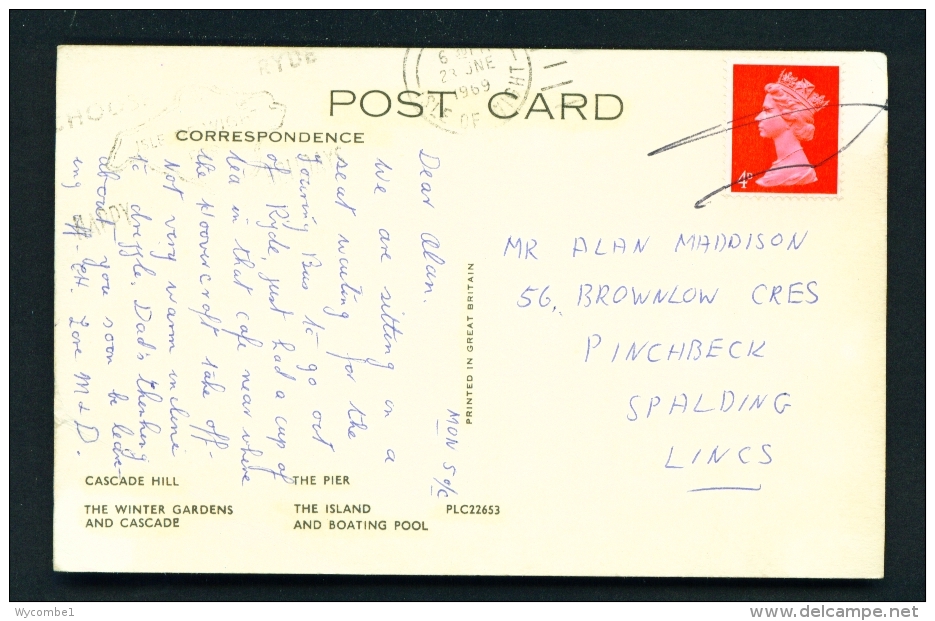 RYDE
6
23 JNE
1969
ISLE OF WIGHT
POST CARD
CORRESPONDENCE
4D
MON 5 o/c
Dear Alan.
We are sitting in a
seat waiting for the
Touring Bus to go out
of Ryde, just had a cup of
tea in that cafe near where
the Hoovercraft take off-
Not very warm incline
to drizzle. Dad's thinking
about you soon be leav-
ing off. Love M & D.
PRINTED IN GREAT BRITAIN
MR ALAN MADDISON
56, BROWNLOW CRES
PINCHBECK
SPALDING
LINCS
CASCADE HILL
THE PIER
THE WINTER GARDENS
AND CASCADE
THE ISLAND
AND BOATING POOL
PLC22653
Wycombe1
delcampe.net